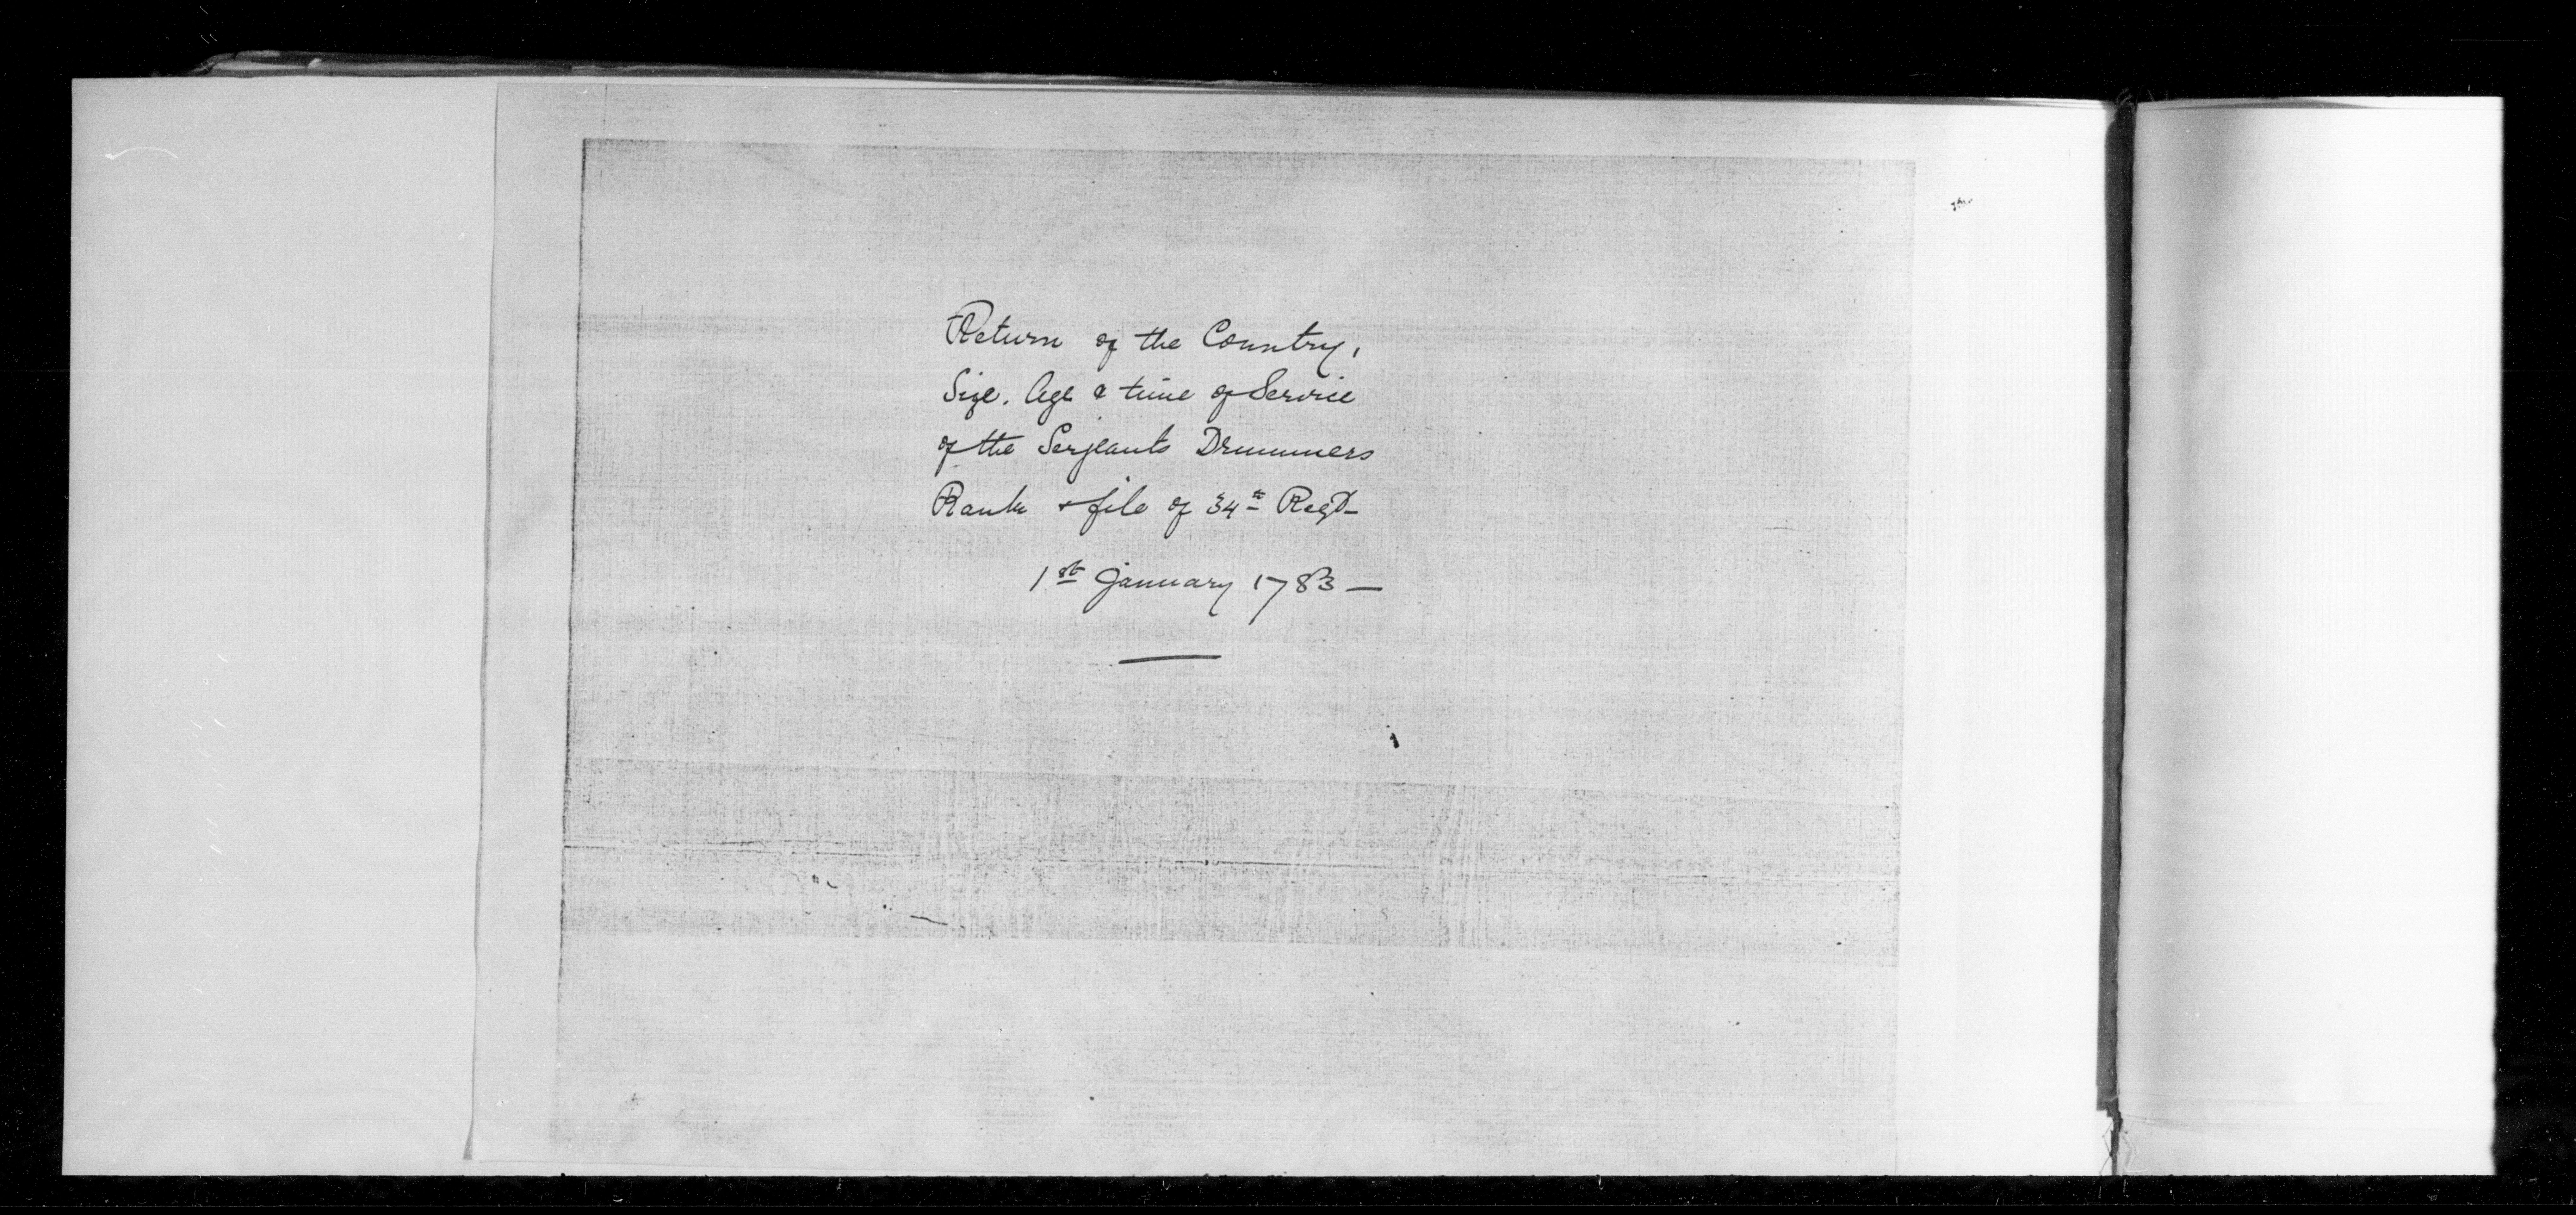 Return of the Country,
Size. Age & time of Service
of the Serjeants Drummers
Rank & file of 34th Regt
1st January 1783 —